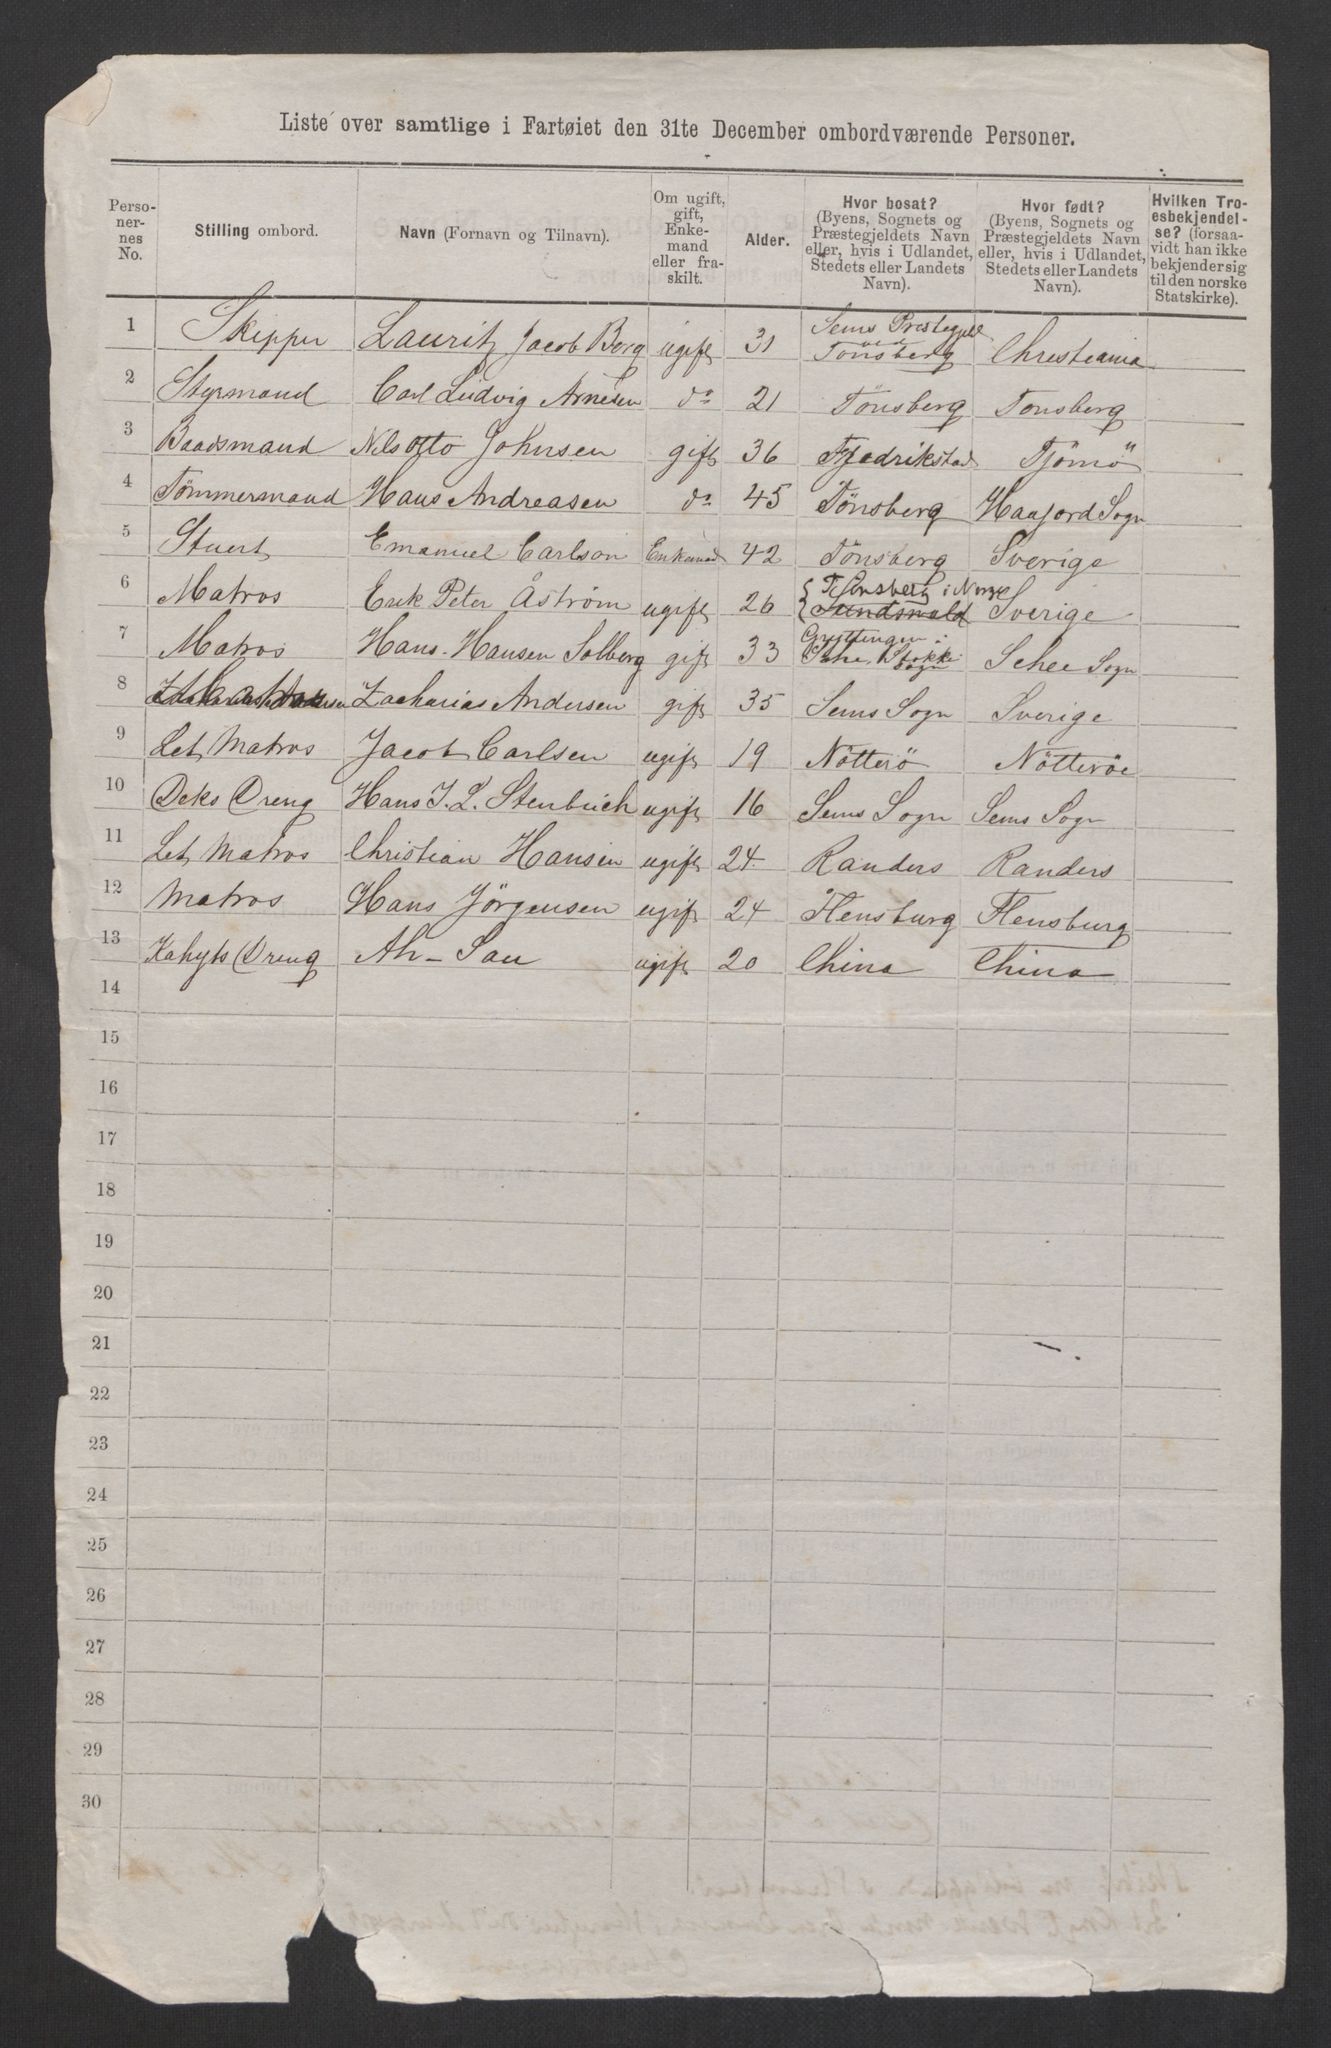 Liste over samtlige i Fartøiet den 31te December ombordværende Personer.
Perso-
ner-
nes
No.
Stilling ombord.
Navn (Fornavn og Tilnavn).
Om ugift,
gift,
Enke-
mand
eller fra-
skilt.
Alder.
Hvor bosat?
(Byens, Sognets og
Præstegjeldets Navn
eller, hvis i Udlandet,
Stedets eller Landets
Navn).
Hvor født?
(Byens, Sognets og
Præstegjeldets Navn
eller, hvis i Udlandet,
Stedets eller Landets
Navn).
Hvilken Tro-
esbekjendel-
se? (forsaa-
vidt han ikke
bekjender sig
til den norske
Statskirke).
1 Skipper Lauritz Jacob Borg ugift 31 Sems Prestegjeld ved Tönsberg Christiania
2 Styrmand Carl Ludvig Arnesen do 21 Tönsberg Tonsberg
3 Baadsmand Nils Otto Johnsen gift 36 Fredrikstad Tjömö
4 Tömmermand Hans Andreasen do 45 Tönsberg Haafjord Sogn
5 Stuert Emanuel Carlson Enkemd 42 Tönsberg Sverige
6 Matros Erik Peter Åström ugift 26 Tönsberg i Norge Sundsvald Sverige
7 Matros Hans Hansen Solberg gift 33 Stokke Sogn Schee Sogn
8 Zacharias Andersen gift 35 Sems Sogn Sverige
9 Let Matros Jacob Carlsen ugift 19 Nötterö Nötteröe
10 Deks Dreng Hans J. L. Stenbuch ugift 16 Sems Sogn Sems Sogn
11 Let Matros Christian Hansen ugift 24 Randers Randers
12 Matros Hans Jörgensen ugift 24 Flensburg Flensburg
13 Kahyts Dreng Ah-Sau ugift 20 China China
14
15
16
17
18
19
20
21
22
23
24
25
26
27
28
29
30